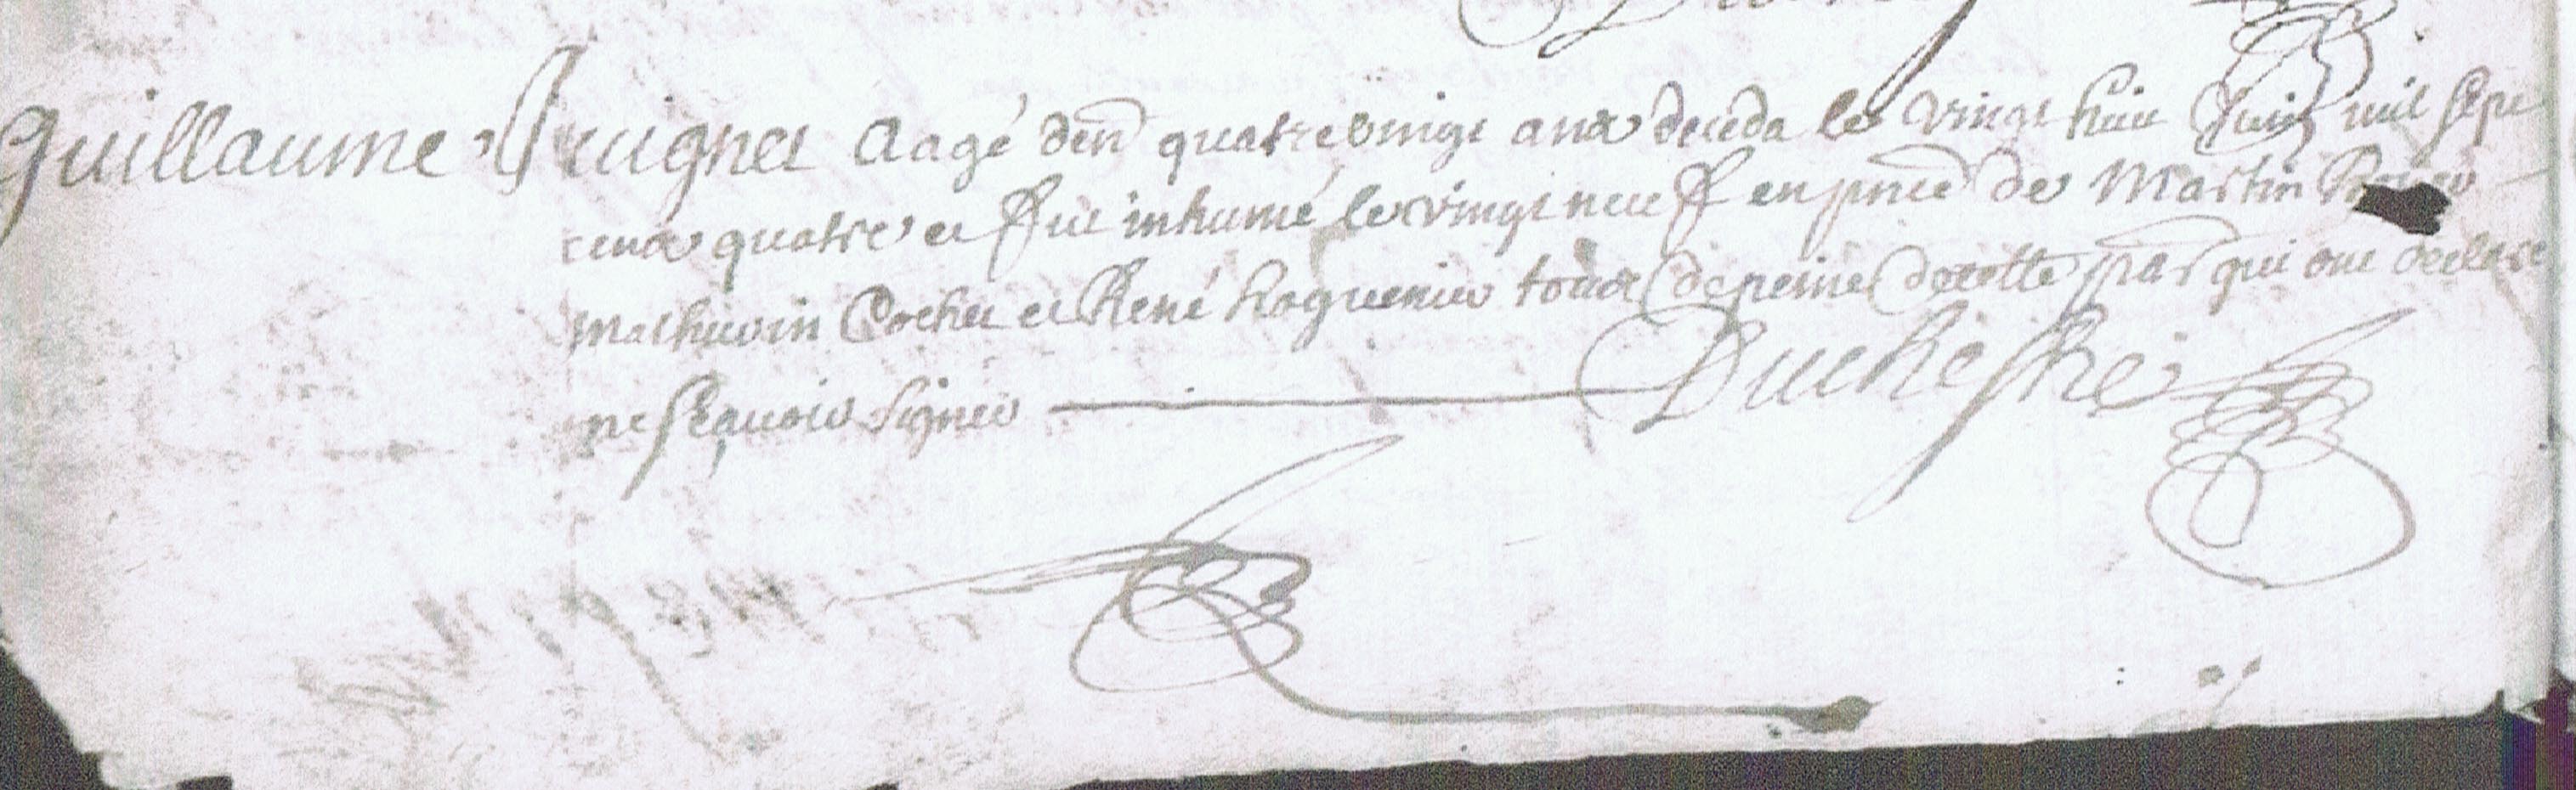 Guillaume Jrugnet aagé denᵒⁿ quatrevingt ans deceda le vingt huit Juin mil sept
cens quatre et fut inhumé le vingt neuf en pnce de Martin
Mathurin Cochet et René hoguenier tous de peine de cette par qui ont declaré
ne sçauoir signer Duchesne